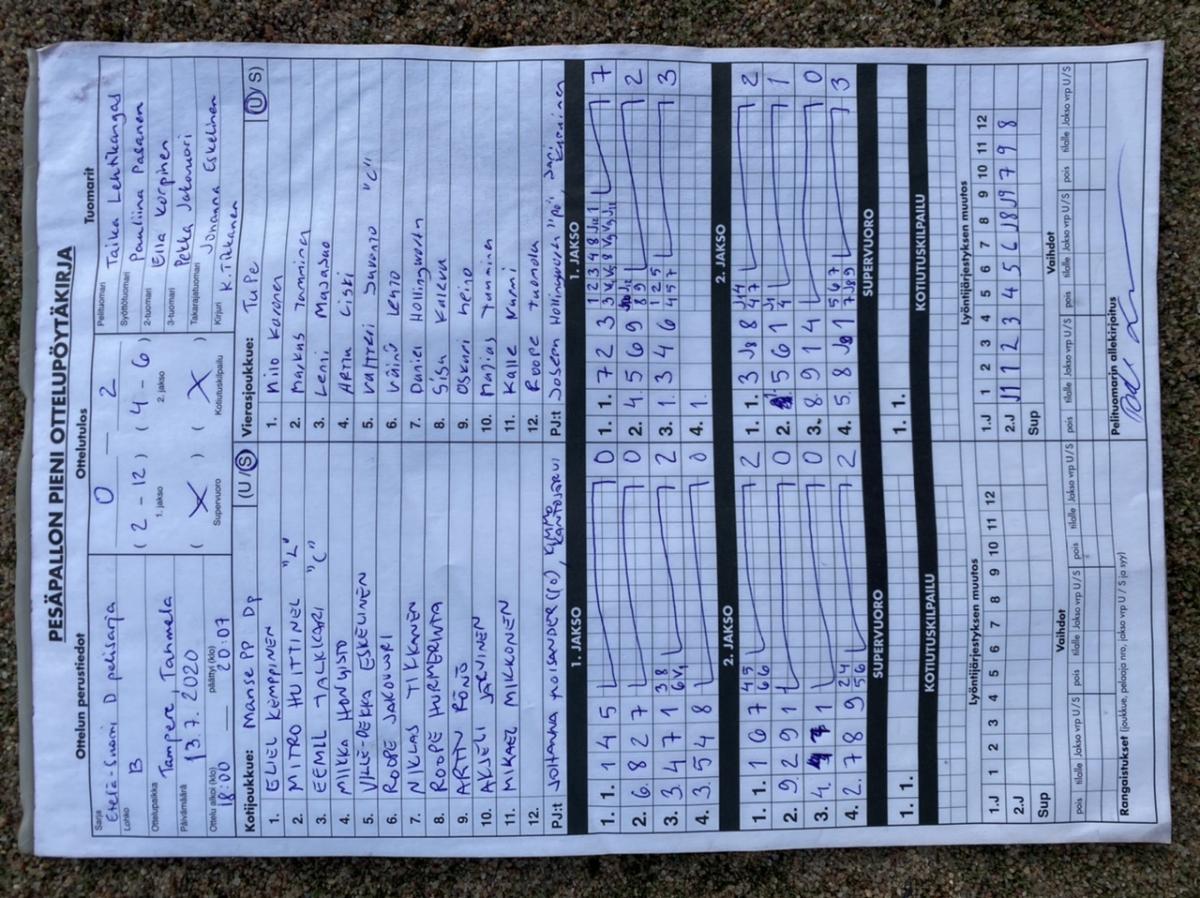 PESÄPALLON PIENI OTTELUPÖYTÄKIRJA
Ottelun perustiedot
Sarja
Etelä-Suomi D pelisarja
Lohko
B
Ottelupaikka
Tampere, Tammela
Päivämäärä
13.7.2020
Ottelu alkoi (klo)
18:00
päättyi (klo)
20:07
Ottelutulos
0 2
(2 - 12) (4 - 6)
1. jakso
2. jakso
( X ) ( X )
Supervuoro
Kotiutuskilpailu
Tuomarit
Pelituomari
Taika Lehtikangas
Syöttötuomari
Pauliina Paranen
2-tuomari
Ella Korpinen
3-tuomari
Pekka Jakonuori
Takarajatuomari
Johanna Eskelinen
Kirjuri
K. Tikkanen
Kotijoukkue: Manse PP Dp (U/S)
1. ELIEL KEMPPINEN
2. MITRO HUITTINEL "L"
3. EEMIL JALKICARI "C"
4. MIKKA HONGISTO
5. VILLE-PEKKA ESKELINEN
6. ROOPE JAKONURI
7. NIKLAS TIKKANEN
8. ROOPE HURMERINTA
9. ARTTU RÖNÖ
10. AKSELI JÄRVINEN
11. MIKAEL MIKKONEN
12.
PJ:t JOHANNA MOISANDER (10), KIMMO KANTOJÄRVI
Vierasjoukkue: TuPe (U/S)
1. Milo Karonen
2. Markus Tamminen
3. Leni Majasuo
4. Arttu Liski
5. Valtteri Survonto "C"
6. Väinö Lehto
7. Daniel Hollingworth
8. Sisu Kaleva
9. Oskari Heino
10. Matias Tamminen
11. Kalle Nurmi
12. Roope Tuomola
PJ:t Joseph Hollingworth "PJ", Jari Karninen
1. JAKSO
1. 1. 1 4 5 0
2. 6. 8 2 7 0
3. 3. 4 7 1 3 8 2
6 V1
4. 3. 5 4 8 0
2. JAKSO
1. 1. 1 6 7 4 5 2
6 6
2. 9. 2 9 1 1 0
3. 4. 1 0
4. 2. 7 8 9 2 4 2
5 6
SUPERVUORO
1. 1.
KOTIUTUSKILPAILU
1. JAKSO
1. 1. 7 2 3 1 2 3 4 8 J12 1 7
2. 4. 5 6 9 2
8 9
3. 1. 3 4 6 1 2 5 3
4 5 7
4. 1.
2. JAKSO
1. 1. 3 J8 8 J1 4 2
4 7
2. 5 6 1 J1 1
4
3. 8. 9 1 4 0
4. 5. 8 J0 1 5 6 7 3
7 J8 9
SUPERVUORO
1. 1.
KOTIUTUSKILPAILU
Lyöntijärjestyksen muutos
1.J 1 2 3 4 5 6 7 8 9 10 11 12
2.J
Sup
Vaihdot
pois tilalle Jakso vrp U/S pois tilalle Jakso vrp U/S pois tilalle Jakso vrp U/S
Rangaistukset (joukkue, pelaaja nro, jakso vrp U / S ja syy)
Lyöntijärjestyksen muutos
1.J 1 2 3 4 5 6 7 8 9 10 11 12
2.J J11 1 2 3 4 5 6 J8 J9 7 9 8
Sup
Vaihdot
pois tilalle Jakso vrp U/S pois tilalle Jakso vrp U/S pois tilalle Jakso vrp U/S
Pelituomarin allekirjoitus